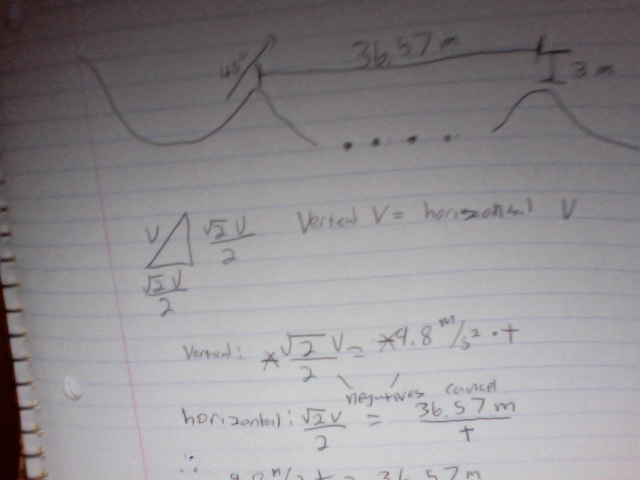 45°
36.57 m
3 m
V √2 V/2 Vertical V = horizontal V
√2 V/2
Vertical: √2 V/2 = 9.8 m/s² · t
negatives cancel
horizontal: √2 V/2 = 36.57 m/t
∴
9.8 m/s² t = 36.57 m